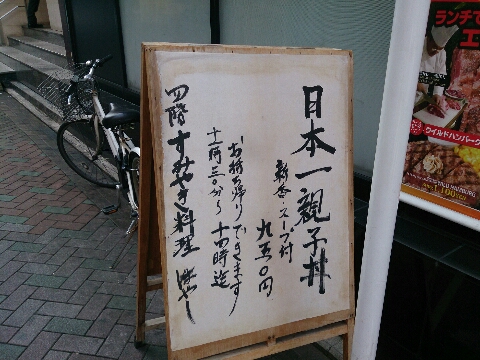 日本一親子丼
新香・スープ付
九五〇円
お持ち帰りできます
十一時三〇から十四時迄
四階 すみやき料理 はやし
ランチで
ワイルドハンバーグ